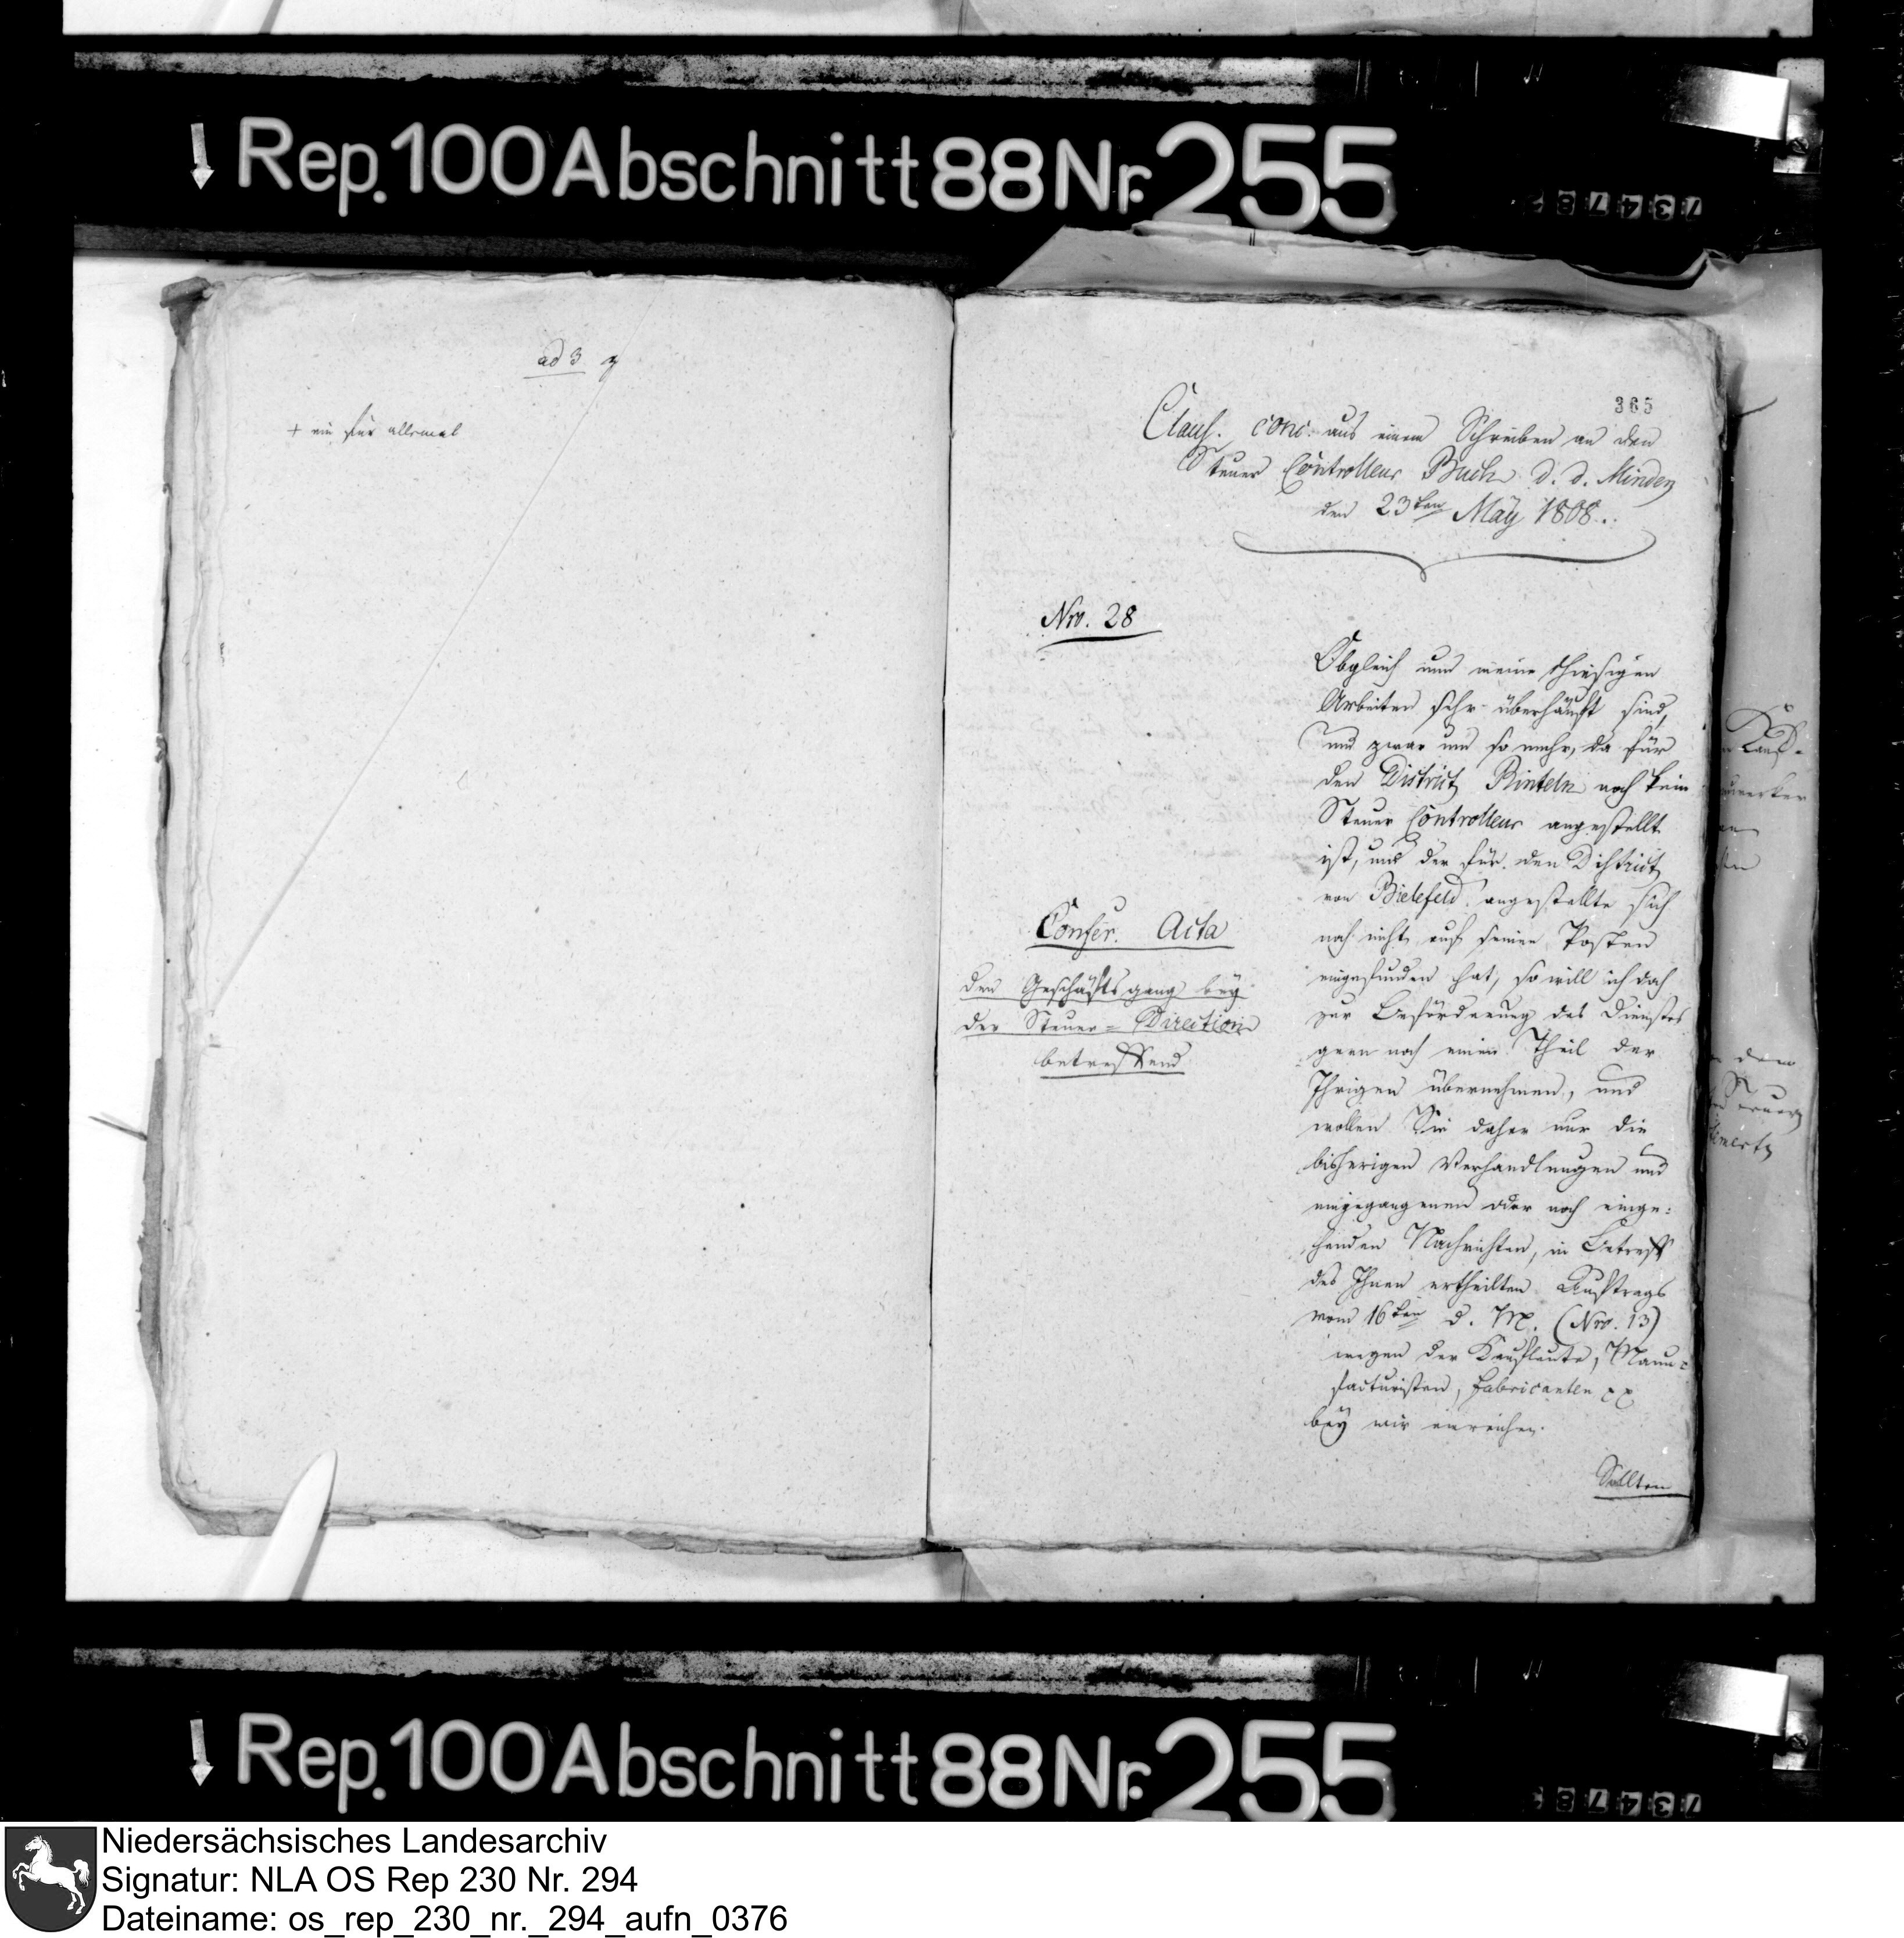 Rep. 100 Abschnitt 88 Nr. 255
73478
ad 3
+ ein für allemal
365
Claus. conc. aus einem Schreiben an den
Steuer Controlleur Buch d. d. Minden
den 23ten May 1808.
Nro. 28
Obgleich nun meine hiesigen
Arbeiten sehr überhäuft sind,
und zwar um so mehr, da für
den District Rinteln noch kein
Steuer Controlleur angestellt
ist, und der für den District
von Bielefeld angestellte sich
noch nicht auf seinen Posten
eingefunden hat, so will ich doch
zur Beförderung des Dienstes
gern noch einen Theil der
Ihrigen übernehmen, und
wollen Sie daher nur die
bisherigen Verhandlungen und
eingegangenen oder noch einge=
henden Nachrichten, in Betreff
des Ihnen ertheilten Auftrags
vom 16ten d. M. (Nro. 13)
wegen der Kaufleute, Manu=
facturisten, Fabricanten
bey mir einreichen.
Sollten
Confer. Acta
den Geschäftsgang bey
der Steuer=Direction
betreffend
Rep. 100 Abschnitt 88 Nr. 255
73478
Niedersächsisches Landesarchiv
Signatur: NLA OS Rep 230 Nr. 294
Dateiname: os_rep_230_nr._294_aufn_0376